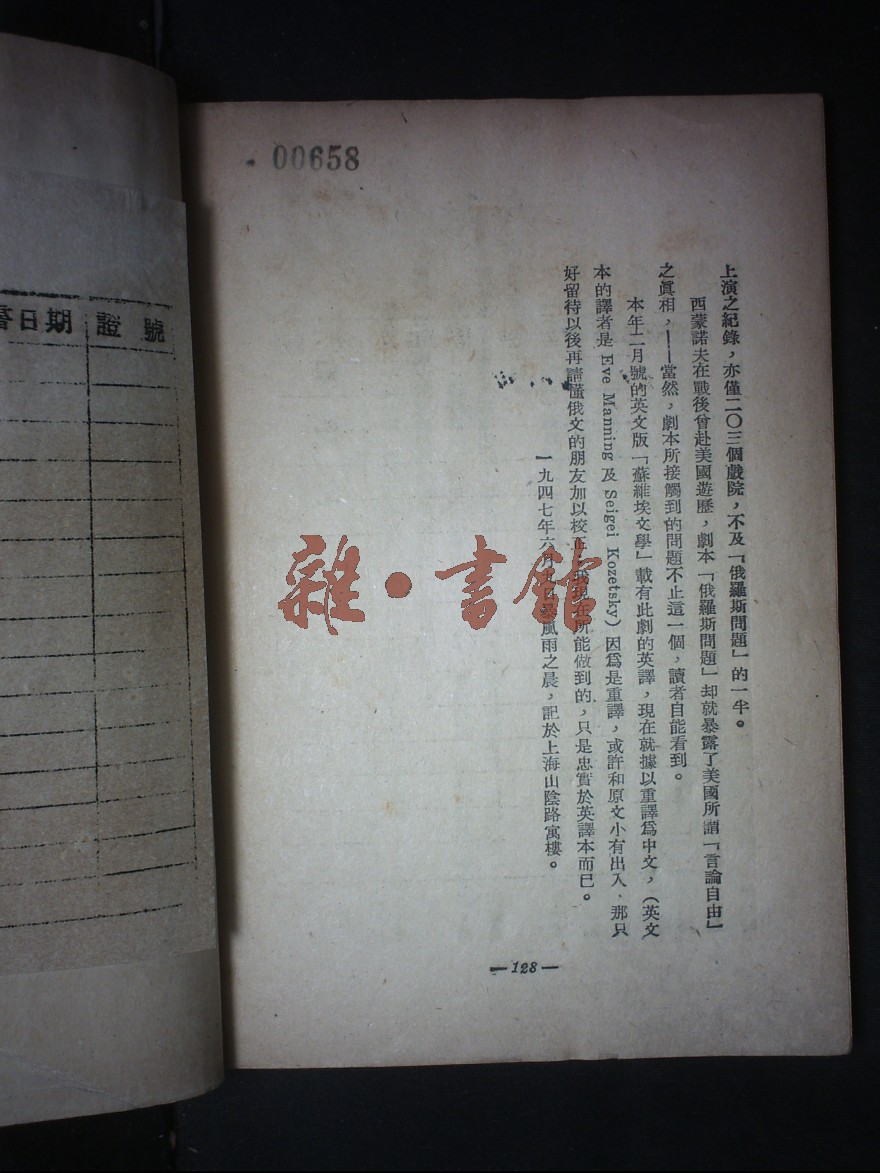 00658
上演之紀錄，亦僅二〇三個戲院，不及「俄羅斯問題」的一半。
西蒙諾夫在戰後曾赴美國遊歷，劇本「俄羅斯問題」却就暴露了美國所謂「言論自由」
之眞相，——當然，劇本所接觸到的問題不止這一個，讀者自能看到。
本年二月號的英文版「蘇維埃文學」載有此劇的英譯，現在就據以重譯爲中文，（英文
本的譯者是 Eve Manning 及 Seigei Kozetsky）因爲是重譯，或許和原文小有出入，那只
好留待以後再請懂俄文的朋友加以校正，我現在所能做到的，只是忠實於英譯本而已。
一九四七年六月 風雨之晨，記於上海山陰路寓樓。
—128—
日期
證號
雜·書館